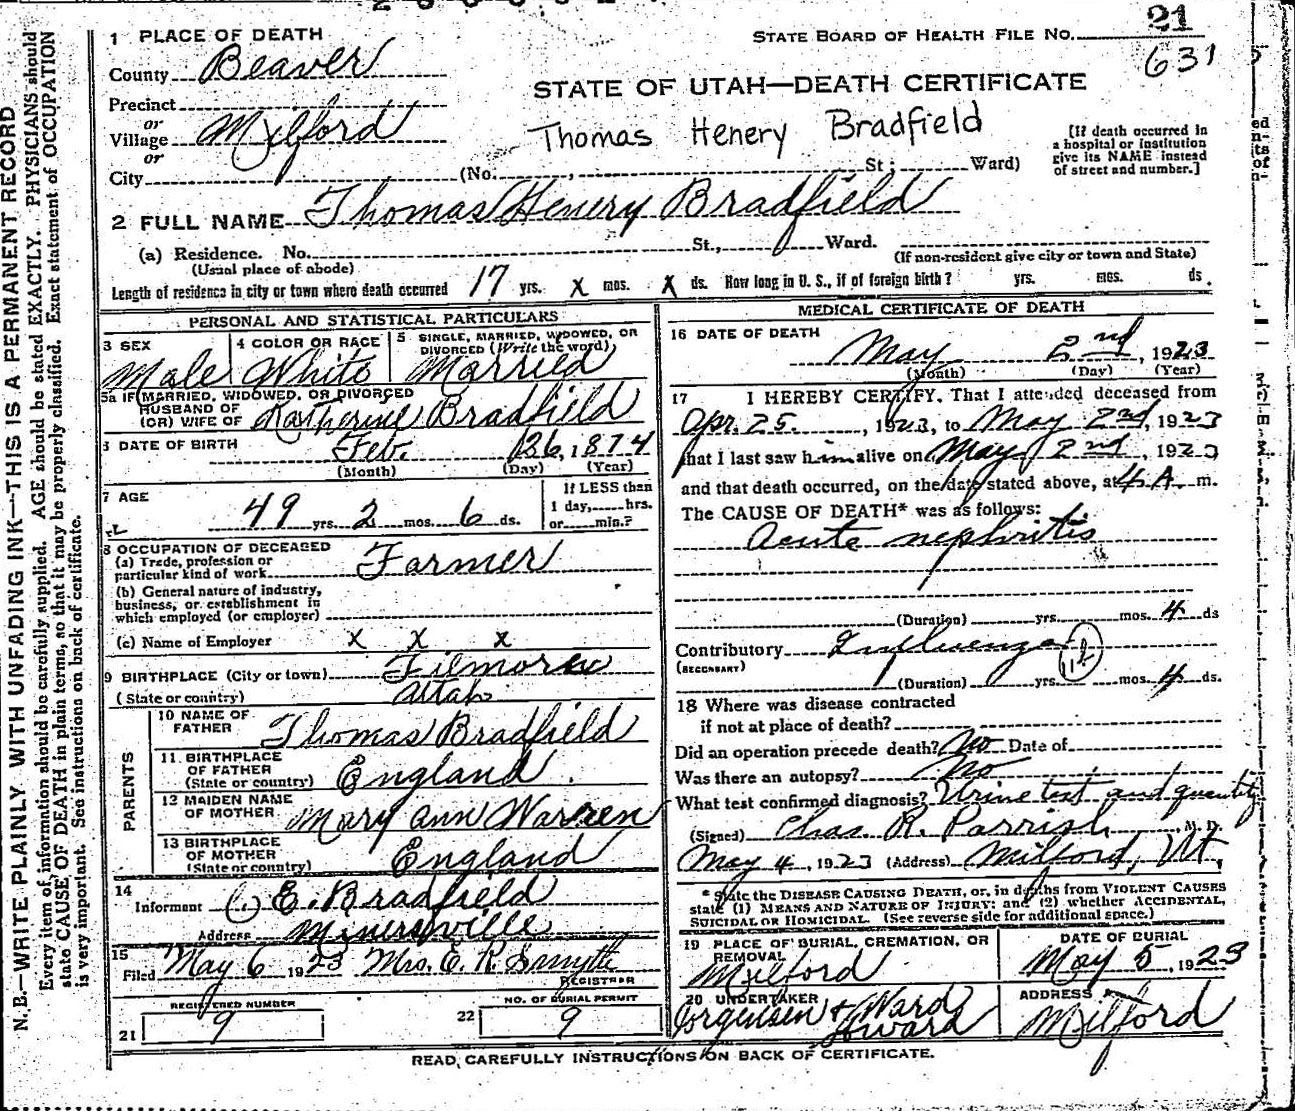 21
STATE BOARD OF HEALTH FILE NO.
631
1 PLACE OF DEATH
County Beaver
STATE OF UTAH—DEATH CERTIFICATE
Precinct
or
Village Milford
Thomas Henery Bradfield
or
City (No. , St; Ward)
[If death occurred in
a hospital or institution
give its NAME instead
of street and number.]
2 FULL NAME Thomas Henery Bradfield
(a) Residence. No. St., Ward.
(Usual place of abode)
(If non-resident give city or town and State)
Length of residence in city or town where death occurred 17 yrs. X mos. X ds. How long in U. S., if of foreign birth? yrs. mos. ds.
PERSONAL AND STATISTICAL PARTICULARS
3 SEX
Male
4 COLOR OR RACE
White
5 SINGLE, MARRIED, WIDOWED, OR
DIVORCED (Write the word)
Married
5a IF MARRIED, WIDOWED, OR DIVORCED
HUSBAND OF
(OR) WIFE OF Katherine Bradfield
6 DATE OF BIRTH Feb. 26, 1874
(Month) (Day) (Year)
7 AGE
49 yrs. 2 mos. 6 ds.
If LESS than
1 day, hrs.
or min.?
8 OCCUPATION OF DECEASED
(a) Trade, profession or
particular kind of work Farmer
(b) General nature of industry,
business, or establishment in
which employed (or employer)
(c) Name of Employer X X X
9 BIRTHPLACE (City or town) Filmore
(State or country) Utah
PARENTS
10 NAME OF
FATHER Thomas Bradfield
11 BIRTHPLACE
OF FATHER
(State or country) England
12 MAIDEN NAME
OF MOTHER Mary Ann Warren
13 BIRTHPLACE
OF MOTHER
(State or country) England
14
Informant E. Bradfield
Address Minersville
15
Filed May 6 1923 Mrs. E. R. Smyth
REGISTRAR
REGISTERED NUMBER
21 9
NO. OF BURIAL PERMIT
22 9
MEDICAL CERTIFICATE OF DEATH
16 DATE OF DEATH
May 2nd, 1923
(Month) (Day) (Year)
17 I HEREBY CERTIFY, That I attended deceased from
Apr. 25, 1923, to May 2nd, 1923
that I last saw him alive on May 2nd, 1923
and that death occurred, on the date stated above, at 4 A. m.
The CAUSE OF DEATH* was as follows:
Acute nephritis
(Duration) yrs. mos. 4 ds
Contributory Influenza 11b
(SECONDARY)
(Duration) yrs. mos. 4 ds.
18 Where was disease contracted
if not at place of death?
Did an operation precede death? No Date of
Was there an autopsy? No
What test confirmed diagnosis? Urine test and quantity
(Signed) Chas. R. Parrish, M. D.
May 4, 1923 (Address) Milford, Ut.
* State the DISEASE CAUSING DEATH, or, in deaths from VIOLENT CAUSES
state (1) MEANS AND NATURE OF INJURY; and (2) whether ACCIDENTAL,
SUICIDAL OR HOMICIDAL. (See reverse side for additional space.)
19 PLACE OF BURIAL, CREMATION, OR
REMOVAL
Milford
DATE OF BURIAL
May 5, 1923
20 UNDERTAKER
Jorgensen & Ward
Howard
ADDRESS
Milford
READ CAREFULLY INSTRUCTIONS ON BACK OF CERTIFICATE.
N. B.—WRITE PLAINLY WITH UNFADING INK—THIS IS A PERMANENT RECORD
Every item of information should be carefully supplied. AGE should be stated EXACTLY. PHYSICIANS should
state CAUSE OF DEATH in plain terms, so that it may be properly classified. Exact statement of OCCUPATION
is very important. See instructions on back of certificate.